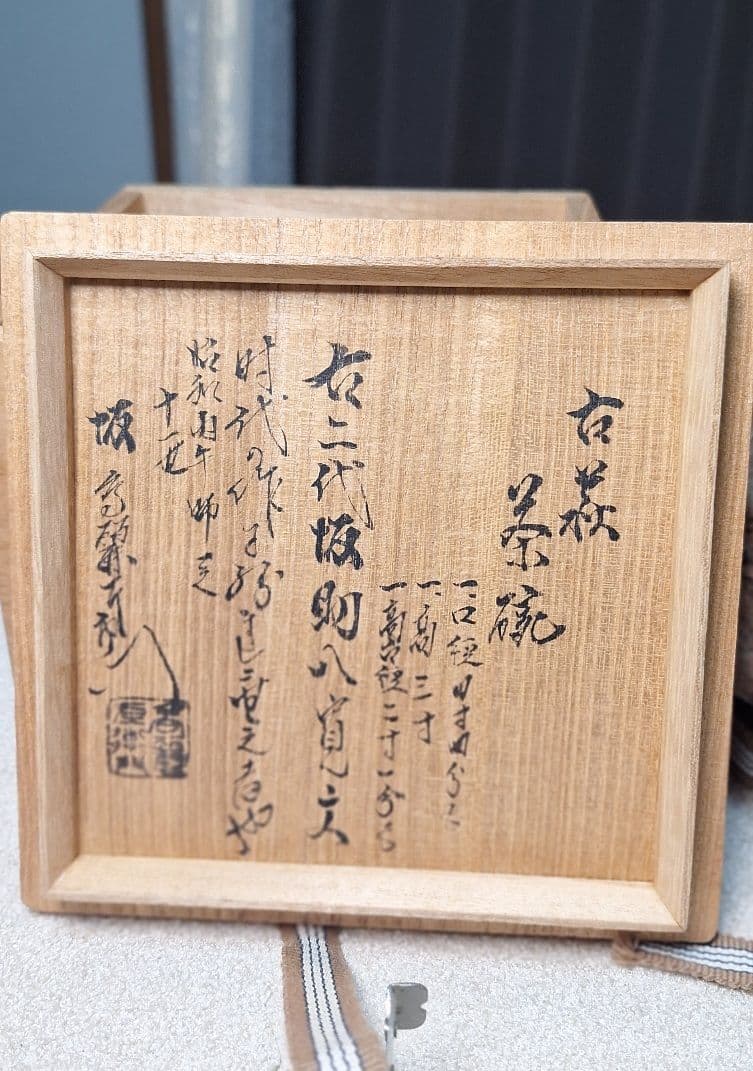 古萩
茶碗
一、口径 四寸四分
一、高 三寸
一、高台径 二寸一分
右二代坂助八寛文
時代の作
昭和丙午 師走
十一世
坂高麗左衛門